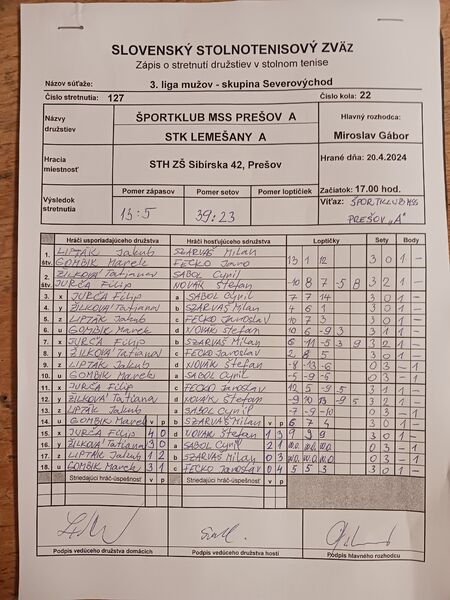 SLOVENSKÝ STOLNOTENISOVÝ ZVÄZ
Zápis o stretnutí družstiev v stolnom tenise
Názov súťaže: 3. liga mužov - skupina Severovýchod
Číslo stretnutia: 127 Číslo kola: 22
Názvy družstiev ŠPORTKLUB MSS PREŠOV A
STK LEMEŠANY A
Hlavný rozhodca:
Miroslav Gábor
Hracia miestnosť STH ZŠ Sibírska 42, Prešov
Hrané dňa: 20.4.2024
Výsledok stretnutia
Pomer zápasov Pomer setov Pomer loptičiek
Začiatok: 17.00 hod.
13:5 39:23
Víťaz: ŠPORTKLUB MSS
PREŠOV „A"
Hráči usporiadajúceho družstva Hráči hosťujúceho sdružstva Loptičky Sety Body
1. LIPTÁK Jakub SZARVAŠ Milan
štv. GOMBÍK Marek FECKO Jaro 13 1 12 3 0 1 -
2. ŽILKOVÁ Tatjana SABOL Cyril
štv. JURČA Filip NOVÁK Štefan -10 8 7 -5 8 3 2 1 -
3. x JURČA Filip a SABOL Cyril 7 7 14 3 0 1 -
4. y ŽILKOVÁ Tatiana b SZARVAŠ Milan 4 6 1 3 0 1 -
5. z LIPTÁK Jakub c FECKO Jaroslav 10 7 3 3 0 1 -
6. u GOMBÍK Marek d NOVÁK Štefan 10 6 -9 3 3 1 1 -
7. x JURČA Filip b SZARVAŠ Milan 6 11 -5 -3 9 3 2 1 -
8. y ŽILKOVÁ Tatiana c FECKO Jaroslav 2 8 5 3 0 1 -
9. z LIPTÁK Jakub d NOVÁK Štefan -8 -13 -6 0 3 - 1
10. u GOMBÍK Marek a SABOL Cyril -5 -9 -6 0 3 - 1
11. x JURČA Filip c FECKO Jaroslav 12 5 -9 5 3 1 1 -
12. y ŽILKOVÁ Tatiana d NOVÁK Štefan -9 10 13 -9 5 3 2 1 -
13. z LIPTÁK Jakub a SABOL Cyril -7 -9 -10 0 3 - 1
14. u GOMBÍK Marek v p b SZARVAŠ Milan v p 6 7 4 3 0 1 -
15. x JURČA Filip 4 0 d NOVÁK Štefan 1 3 3 0 1 -
16. y ŽILKOVÁ Tatiana 3 0 a SABOL Cyril 2 1 w.o. w.o. w.o. 0 3 - 1
17. z LIPTÁK Jakub 1 2 b SZARVAŠ Milan 0 3 w.o. w.o. w.o. 0 3 - 1
18. u GOMBÍK Marek 3 1 c FECKO Jaroslav 0 4 5 5 3 3 0 1 -
Striedajúci hráč-úspešnosť v p Striedajúci hráč-úspešnosť v p
Podpis vedúceho družstva domácich Podpis vedúceho družstva hostí Podpis hlavného rozhodcu